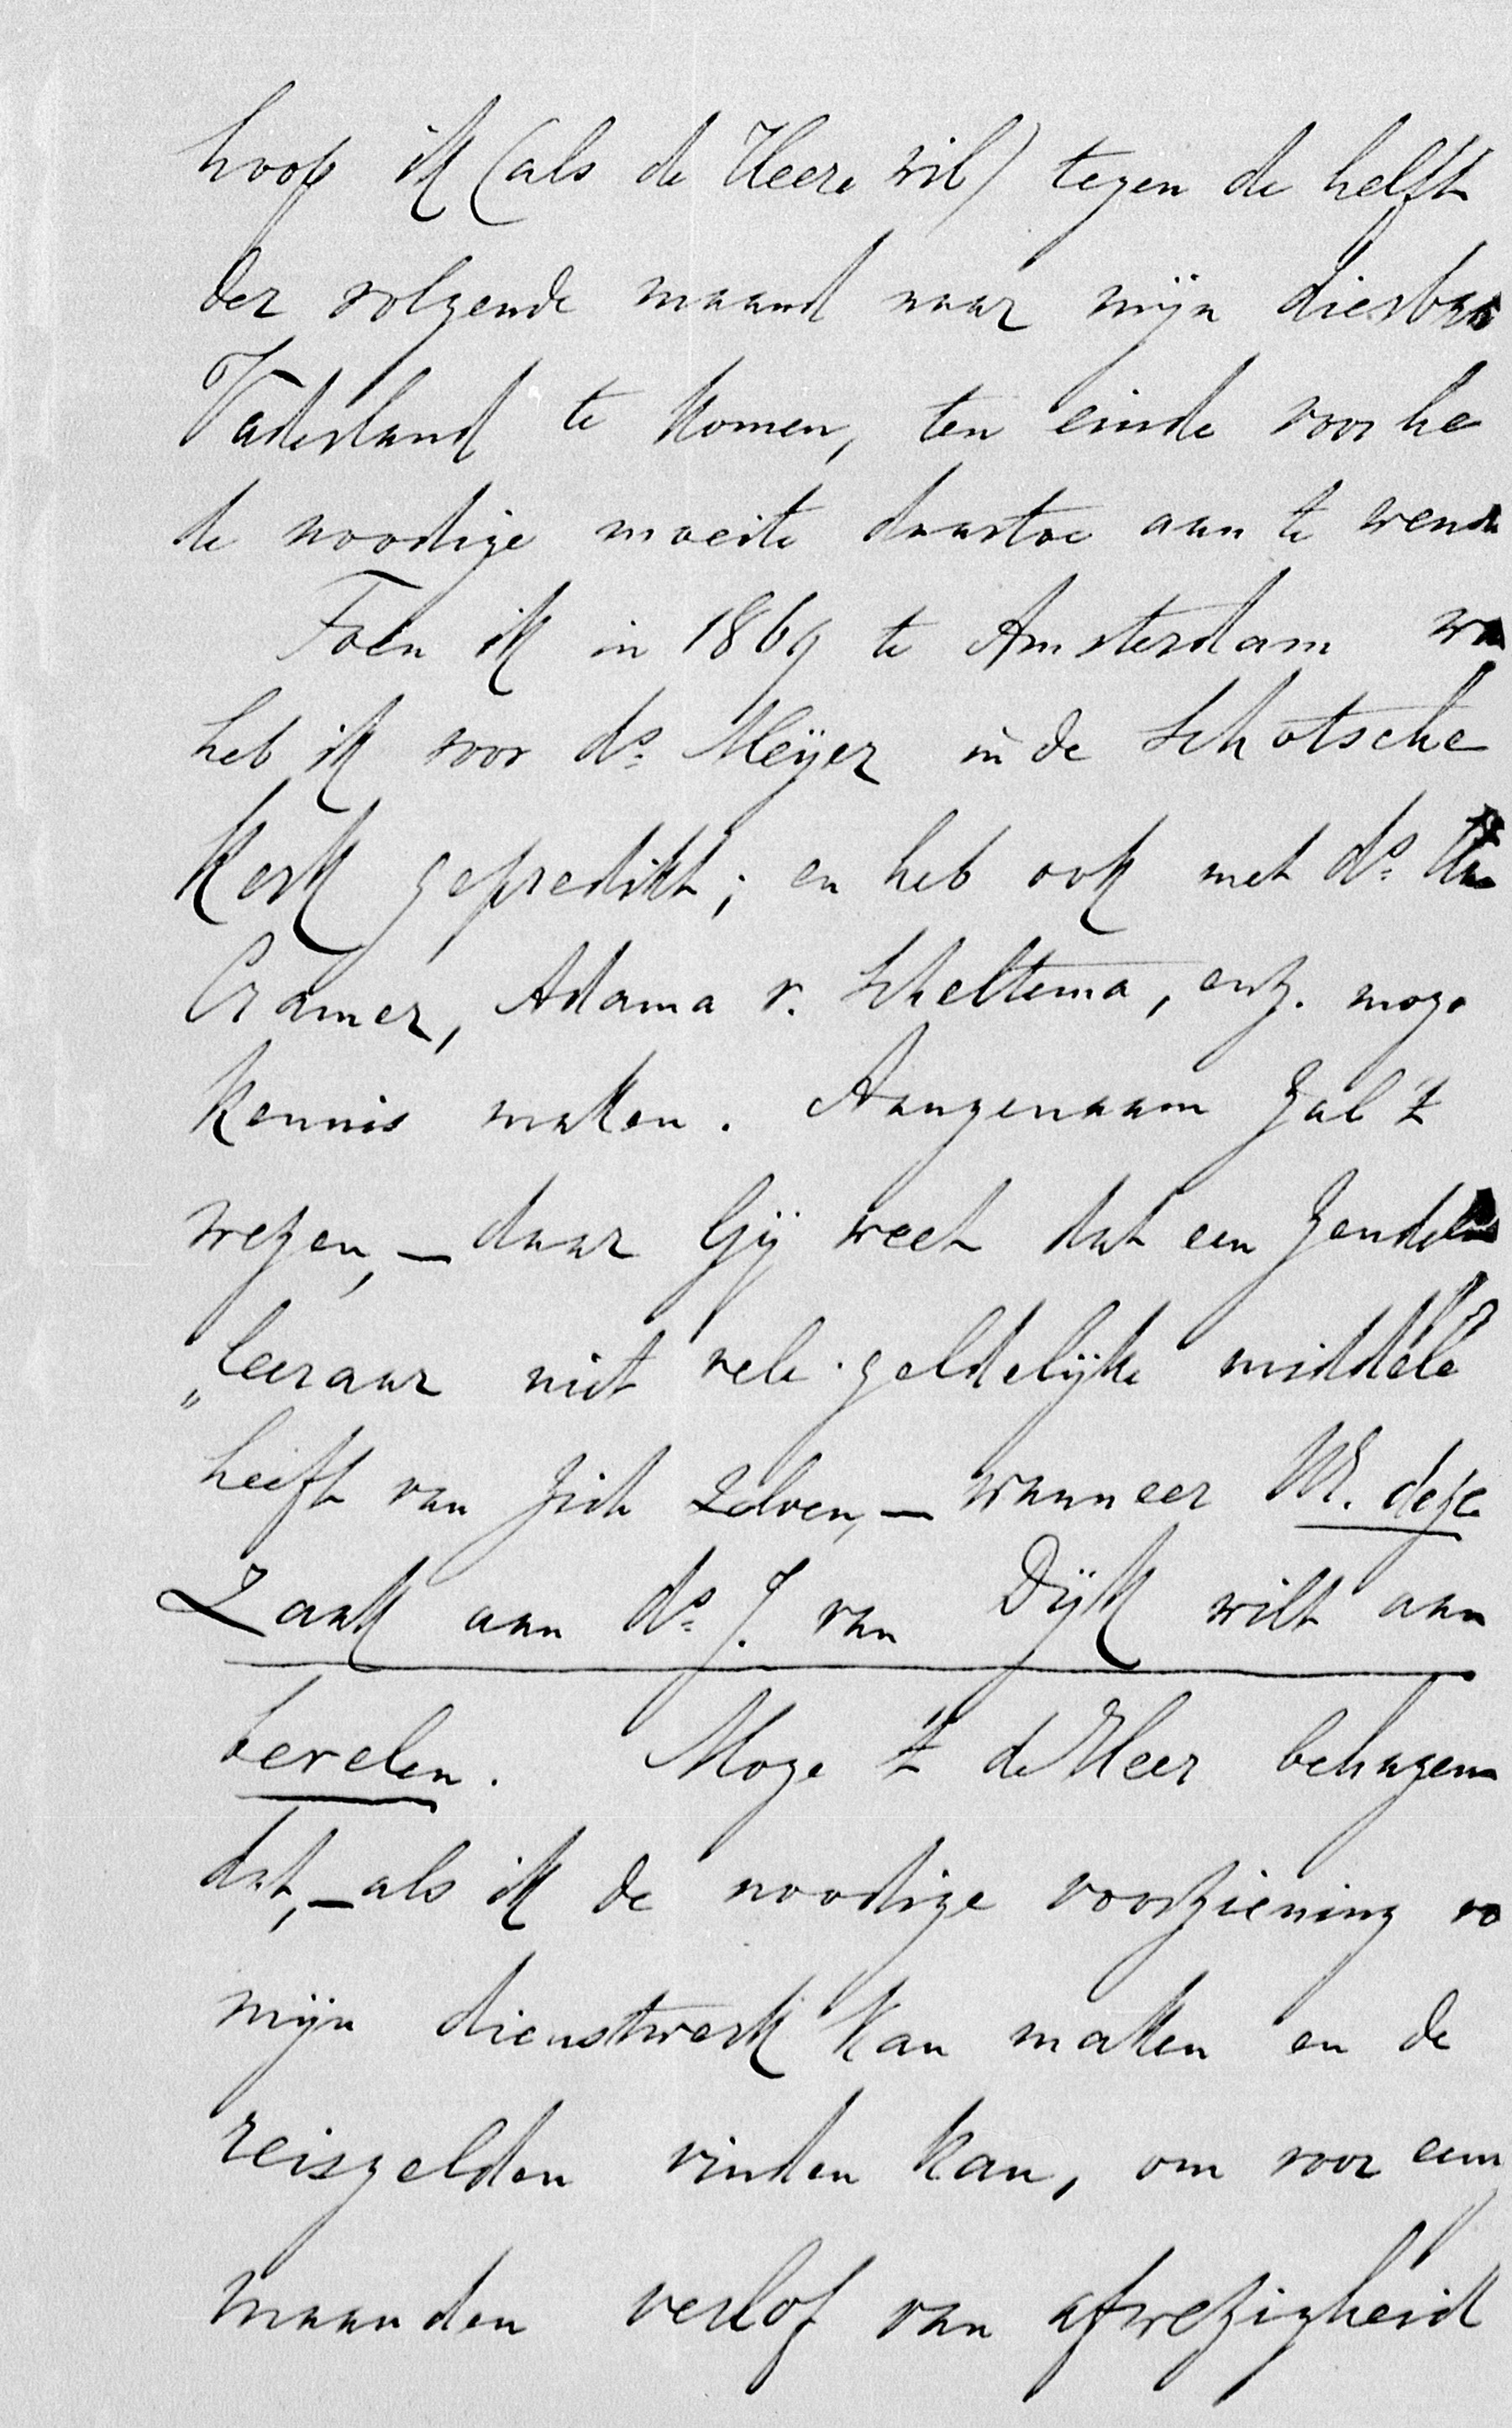 hoop ik (als de Heere wil) tegen de helft
der volgende maand naar mijn dierba
Vaderland te komen, ten einde voor he
de noodige moeite daartoe aan te wend
Toen ik in 1869 te Amsterdam wa
heb ik voor ds. Meijer in de Schotsche
Kerk gepredikt; en heb ook met ds.
Cramer, Adama v. Scheltema, enz. moge
kennis maken. Aangenaam zal 't
wezen, — daar Gij weet dat een Zendel
„leeraar niet vele geldelijke middele
heeft van zich zelven, — wanneer UE. deze
Zaak aan ds. J. van Dijk wilt aan
bevelen. Moge 't de Heer behagen
dat, — als ik de noodige voorziening vo
mijn dienstwerk kan maken en de
reisgelden vinden kan, om voor een
maanden verlof van afwezigheid